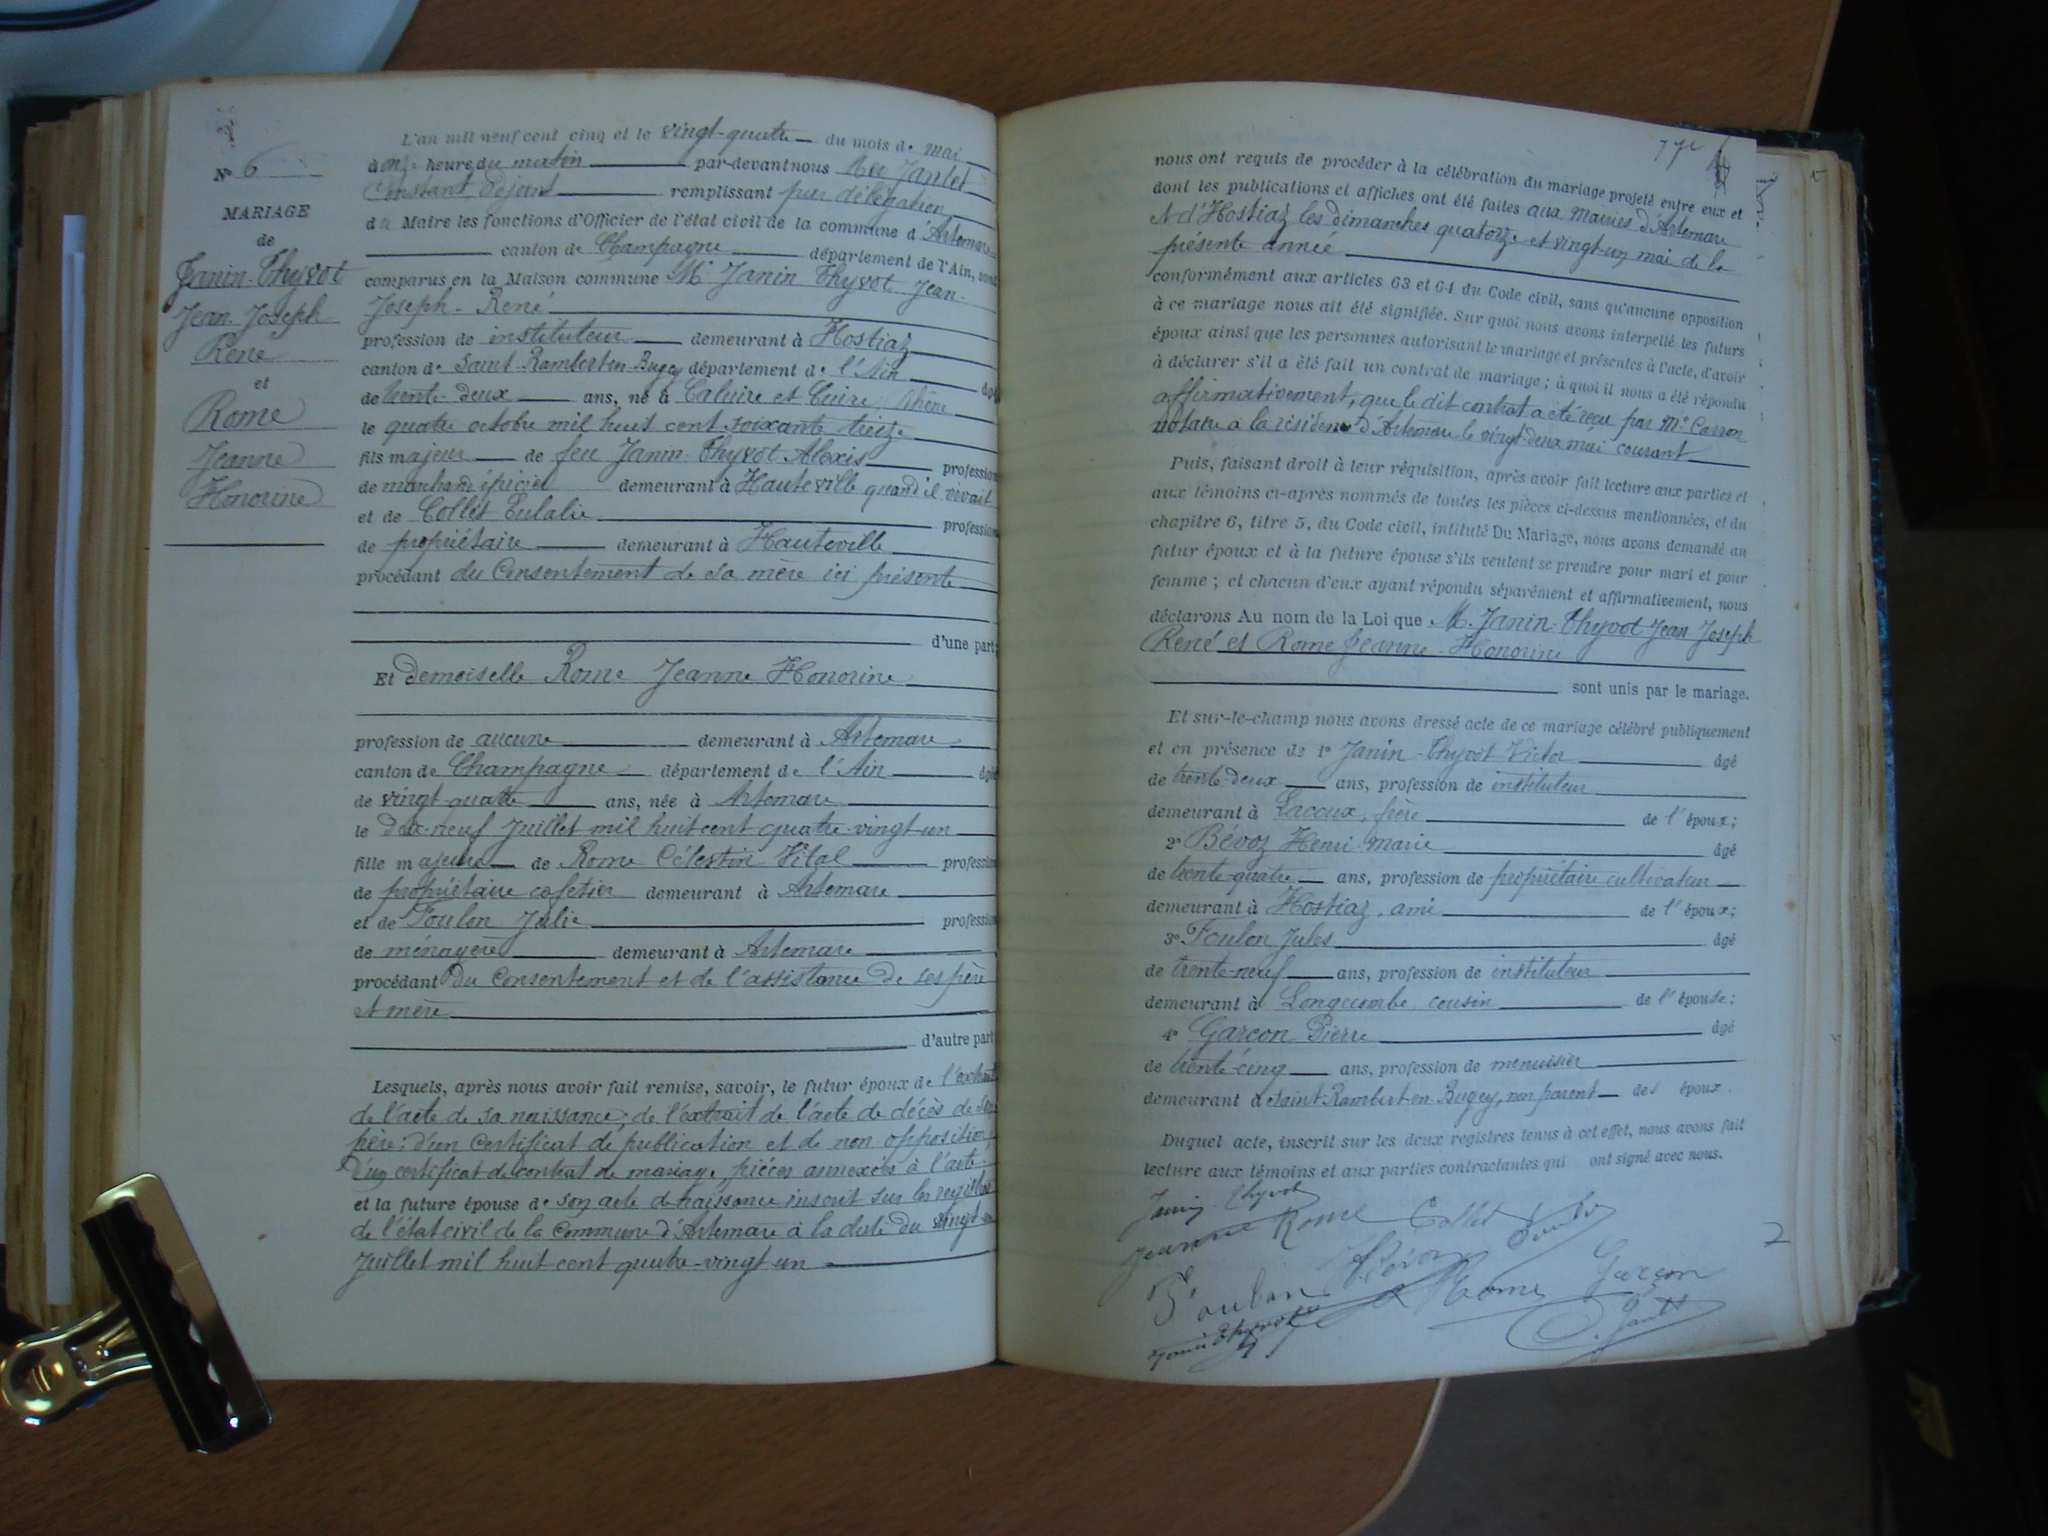 N° 6
MARIAGE
de
Janin-Thyvot
Jean-Joseph
René
et
Rome
Jeanne
Honorine
L'an mil neuf cent cinq et le vingt-quatre du mois de mai
à onze heure du matin par-devant nous
Constant, adjoint remplissant par délégation
du Maire les fonctions d'Officier de l'état civil de la commune d'Artemare
canton de Champagne département de l'Ain, sont
comparus en la Maison commune Mr Janin Thyvot Jean-
Joseph-René
profession de instituteur demeurant à Hostiaz
canton de Saint-Rambert-en-Bugey département de l'Ain âgé
de trente-deux ans, né à Caluire et Cuire, Rhône
le quatre octobre mil huit cent soixante treize
fils majeur de feu Janin-Thyvot Alexis profession
de marchand épicier demeurant à Hauteville quand il vivait
et de Collet Eulalie profession
de propriétaire demeurant à Hauteville
procédant du Consentement de sa mère ici présente
d'une part;
Et demoiselle Rome Jeanne Honorine
profession de aucune demeurant à Artemare
canton de Champagne département de l'Ain âgée
de vingt-quatre ans, née à Artemare
le dix-neuf Juillet mil huit cent quatre-vingt-un
fille majeure de Rome Célestin Vital profession
de propriétaire cafetier demeurant à Artemare
et de Foulon Julie profession
de ménagère demeurant à Artemare
procédant du Consentement et de l'assistance de ses père
et mère
d'autre part
Lesquels, après nous avoir fait remise, savoir, le futur époux de l'extrait
de l'acte de sa naissance; de l'extrait de l'acte de décès de son
père; d'un certificat de publication et de non-opposition;
d'un certificat de contrat de mariage, pièces annexées à l'acte;
et la future épouse de son acte de naissance inscrit sur les registres
de l'état civil de la Commune d'Artemare à la date du vingt-un
Juillet mil huit cent quatre-vingt-un
nous ont requis de procéder à la célébration du mariage projeté entre eux et
dont les publications et affiches ont été faites aux mairies d'Artemare
et d'Hostiaz les dimanches quatorze et vingt-un mai de la
présente année
conformément aux articles 63 et 64 du Code civil, sans qu'aucune opposition
à ce mariage nous ait été signifiée. Sur quoi nous avons interpellé les futurs
époux ainsi que les personnes autorisant le mariage et présentes à l'acte, d'avoir
à déclarer s'il a été fait un contrat de mariage; à quoi il nous a été répondu
affirmativement, que le dit contrat a été reçu par Me Carron
notaire à la résidence d'Artemare le vingt-deux mai courant
Puis, faisant droit à leur réquisition, après avoir fait lecture aux parties et
aux témoins ci-après nommés de toutes les pièces ci-dessus mentionnées, et du
chapitre 6, titre 5, du Code civil, intitulé Du Mariage, nous avons demandé au
futur époux et à la future épouse s'ils veulent se prendre pour mari et pour
femme; et chacun d'eux ayant répondu séparément et affirmativement, nous
déclarons Au nom de la Loi que M. Janin-Thyvot Jean Joseph
René et Rome Jeanne-Honorine
sont unis par le mariage.
Et sur-le-champ nous avons dressé acte de ce mariage célébré publiquement
et en présence de 1° Janin-Thyvot Victor âgé
de trente-deux ans, profession de instituteur
demeurant à Lacoux, frère de l'époux;
2° Bévoz Henri-Marie âgé
de trente-quatre ans, profession de propriétaire cultivateur
demeurant à Hostiaz, ami de l'époux;
3° Foulon Jules âgé
de trente-neuf ans, profession de instituteur
demeurant à Longecombe, cousin de l'épouse;
4° Garcon Pierre âgé
de trente-cinq ans, profession de menuisier
demeurant à Saint-Rambert-en-Bugey, non parent des époux.
Duquel acte, inscrit sur les deux registres tenus à cet effet, nous avons fait
lecture aux témoins et aux parties contractantes qui ont signé avec nous.
Janin-Thyvot
Jeanne Rome Collet
Foulon Rome Garçon
Janin Thyvot
2